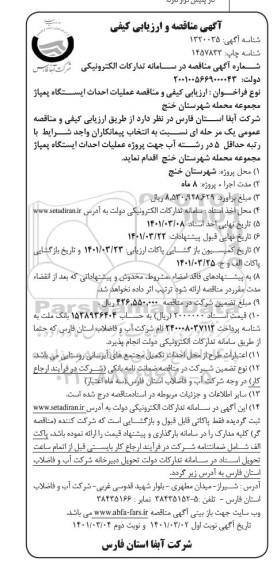 آگهی مناقصه و ارزیابی کیفی
شناسه آگهی: ۱۳۲۰۰۳۵
شناسه چاپ: ۱۴۵۷۸۳۳
شرکت آبفا استان فارس
شماره آگهی مناقصه در سامانه تدارکات الکترونیکی
دولت: ۲۰۰۱۰۰۵۶۶۹۰۰۰۰۴۳
نوع فراخوان: ارزیابی کیفی و مناقصه عملیات احداث ایستگاه پمپاژ
مجموعه محله شهرستان خنج
شرکت آبفا استان فارس در نظر دارد از طریق ارزیابی کیفی و مناقصه
عمومی یک مرحله ای نسبت به انتخاب پیمانکاران واجد شرایط با
رتبه حداقل ۵ در رشته آب جهت پروژه عملیات احداث ایستگاه پمپاژ
مجموعه محله شهرستان خنج اقدام نماید.
۱) محل پروژه: شهرستان خنج
۲) مدت اجرا ی پروژه: ۸ ماه
۳) مبلغ برآورد: ۸,۵۳۰,۹۴۸,۶۲۹ ریال
۴) محل اخذ اسناد: سامانه تدارکات الکترونیکی دولت به آدرس www.setadiran.ir
۵) تاریخ نهایی اخذ اسناد: ۱۴۰۱/۰۳/۰۸
۶) تاریخ نهایی قبول پیشنهادات: ۱۴۰۱/۰۳/۲۲
۷) تاریخ کمیسیون بازگشایی پاکات ارزیابی: ۱۴۰۱/۰۳/۲۳ و تاریخ بازگشایی
پاکات الف و ج: ۱۴۰۱/۰۳/۲۵
۸) به پیشنهادهای فاقد امضاء، مشروط، مخدوش و پیشنهاداتی که بعد از انقضاء
مدت مقرر در مناقصه ارائه شود ترتیب اثر داده نخواهد شد.
۹) مبلغ تضمین شرکت در مناقصه ۴۲۶,۵۵۰,۰۰۰ ریال.
۱۰) قیمت اسناد ۲۰۰۰۰۰۰ (ریال) به حساب ۱۵۲۸۹۳۶۴۰۴ بانک ملت به
شناسه پرداخت ۲۴۰۰۰۸۰۳۷۱۱۲ نام شرکت آب و فاضلاب استان فارس که حتما
از طریق سامانه تدارکات الکترونیکی دولت انجام پذیرد.
۱۱) اعتبارات طرح از محل احداث تکمیل مجتمع های آبرسانی روستایی می باشد.
۱۲) نوع تضمین شرکت در مناقصه:ضمانت نامه بانکی (شرکت در فرآیند ارجاع
کار) در وجه شرکت آب و فاضلاب استان فارس.(سه ماه اعتبار)
۱۳) سایر اطلاعات و جزئیات مربوطه در اسنادمناقصه درج شده است.
۱۴) این آگهی در سامانه تدارکات الکترونیکی دولت به آدرس www.setadiran.ir
ثبت گردیده فقط پاکاتی قابل قبول و بازگشایی است که شرکت کننده (مناقصه
گر) کلیه مدارک را در سامانه بارگذاری و پیشنهاد قیمت را ارائه نموده باشد، پاکت
الف شامل ضمانتنامه شرکت در فرآیند ارجاع کار بایستی قبل از اتمام ساعت
تحویل اسناد در سامانه تدارکات دولت تحویل دبیرخانه شرکت آب و فاضلاب
استان فارس به آدرس زیر گردد.
آدرس: شیراز- میدان مطهری - بلوار شهید قدوسی غربی- شرکت آب و فاضلاب
استان فارس - تلفن :۵-۳۸۴۳۵۱۵۲ نمابر : ۳۸۴۳۵۱۶۶
وب سایت جهت باز بینی آگهی مناقصه www.abfa-fars.ir می باشد.
تاریخ آگهی نوبت اول ۱۴۰۱/۰۳/۰۲ و نوبت دوم ۱۴۰۱/۰۳/۰۴
شرکت آبفا استان فارس